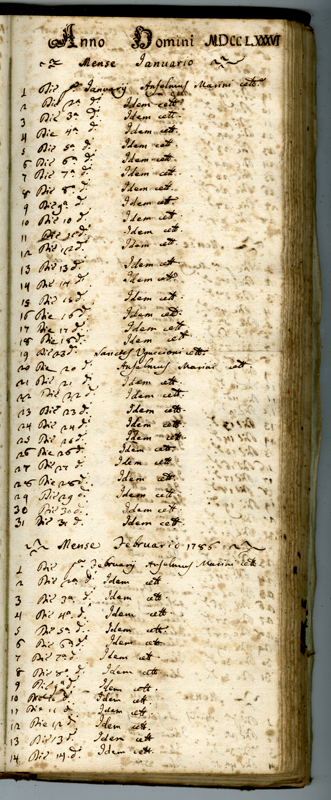 Anno Domini MDCCLXXXVI
Mense Januario
1 Die pa Januarij Anselmus Marini cett.
2 Die 2a d. Idem cett.
3 Die 3a d. Idem cett.
4 Die 4a d. Idem cett.
5 Die 5a d. Idem cett.
6 Die 6a d. Idem cett.
7 Die 7a d. Idem cett.
8 Die 8a d. Idem cett.
9 Die 9a d. Idem cett.
10 Die 10 d. Idem cett.
11 Die 11 d. Idem cett.
12 Die 12 d. Idem cett.
13 Die 13 d. Idem cett.
14 Die 14 d. Idem cett.
15 Die 15 d. Idem cett.
16 Die 16 d. Idem cett.
17 Die 17 d. Idem cett.
18 Die 18 d. Idem cett.
19 Die d. Sanctes cett.
20 Die 20 d. Anselmus Marini cett.
21 Die 21 d. Idem cett.
22 Die 22 d. Idem cett.
23 Die 23 d. Idem cett.
24 Die 24 d. Idem cett.
25 Die 25 d. Idem cett.
26 Die 26 d. Idem cett.
27 Die 27 d. Idem cett.
28 Die 28 d. Idem cett.
29 Die 29 d. Idem cett.
30 Die 30 d. Idem cett.
31 Die 31 d. Idem cett.
Mense Februario 1786
1 Die pa Februarij Anselmus Marini cett.
2 Die 2a d. Idem cett.
3 Die 3a d. Idem cett.
4 Die 4a d. Idem cett.
5 Die 5a d. Idem cett.
6 Die 6a d. Idem cett.
7 Die 7a d. Idem cett.
8 Die 8a d. Idem cett.
9 Die 9a d. Idem cett.
10 Die d. Idem cett.
11 Die 11 d. Idem cett.
12 Die 12 d. Idem cett.
13 Die 13 d. Idem cett.
14 Die 14 d. Idem cett.